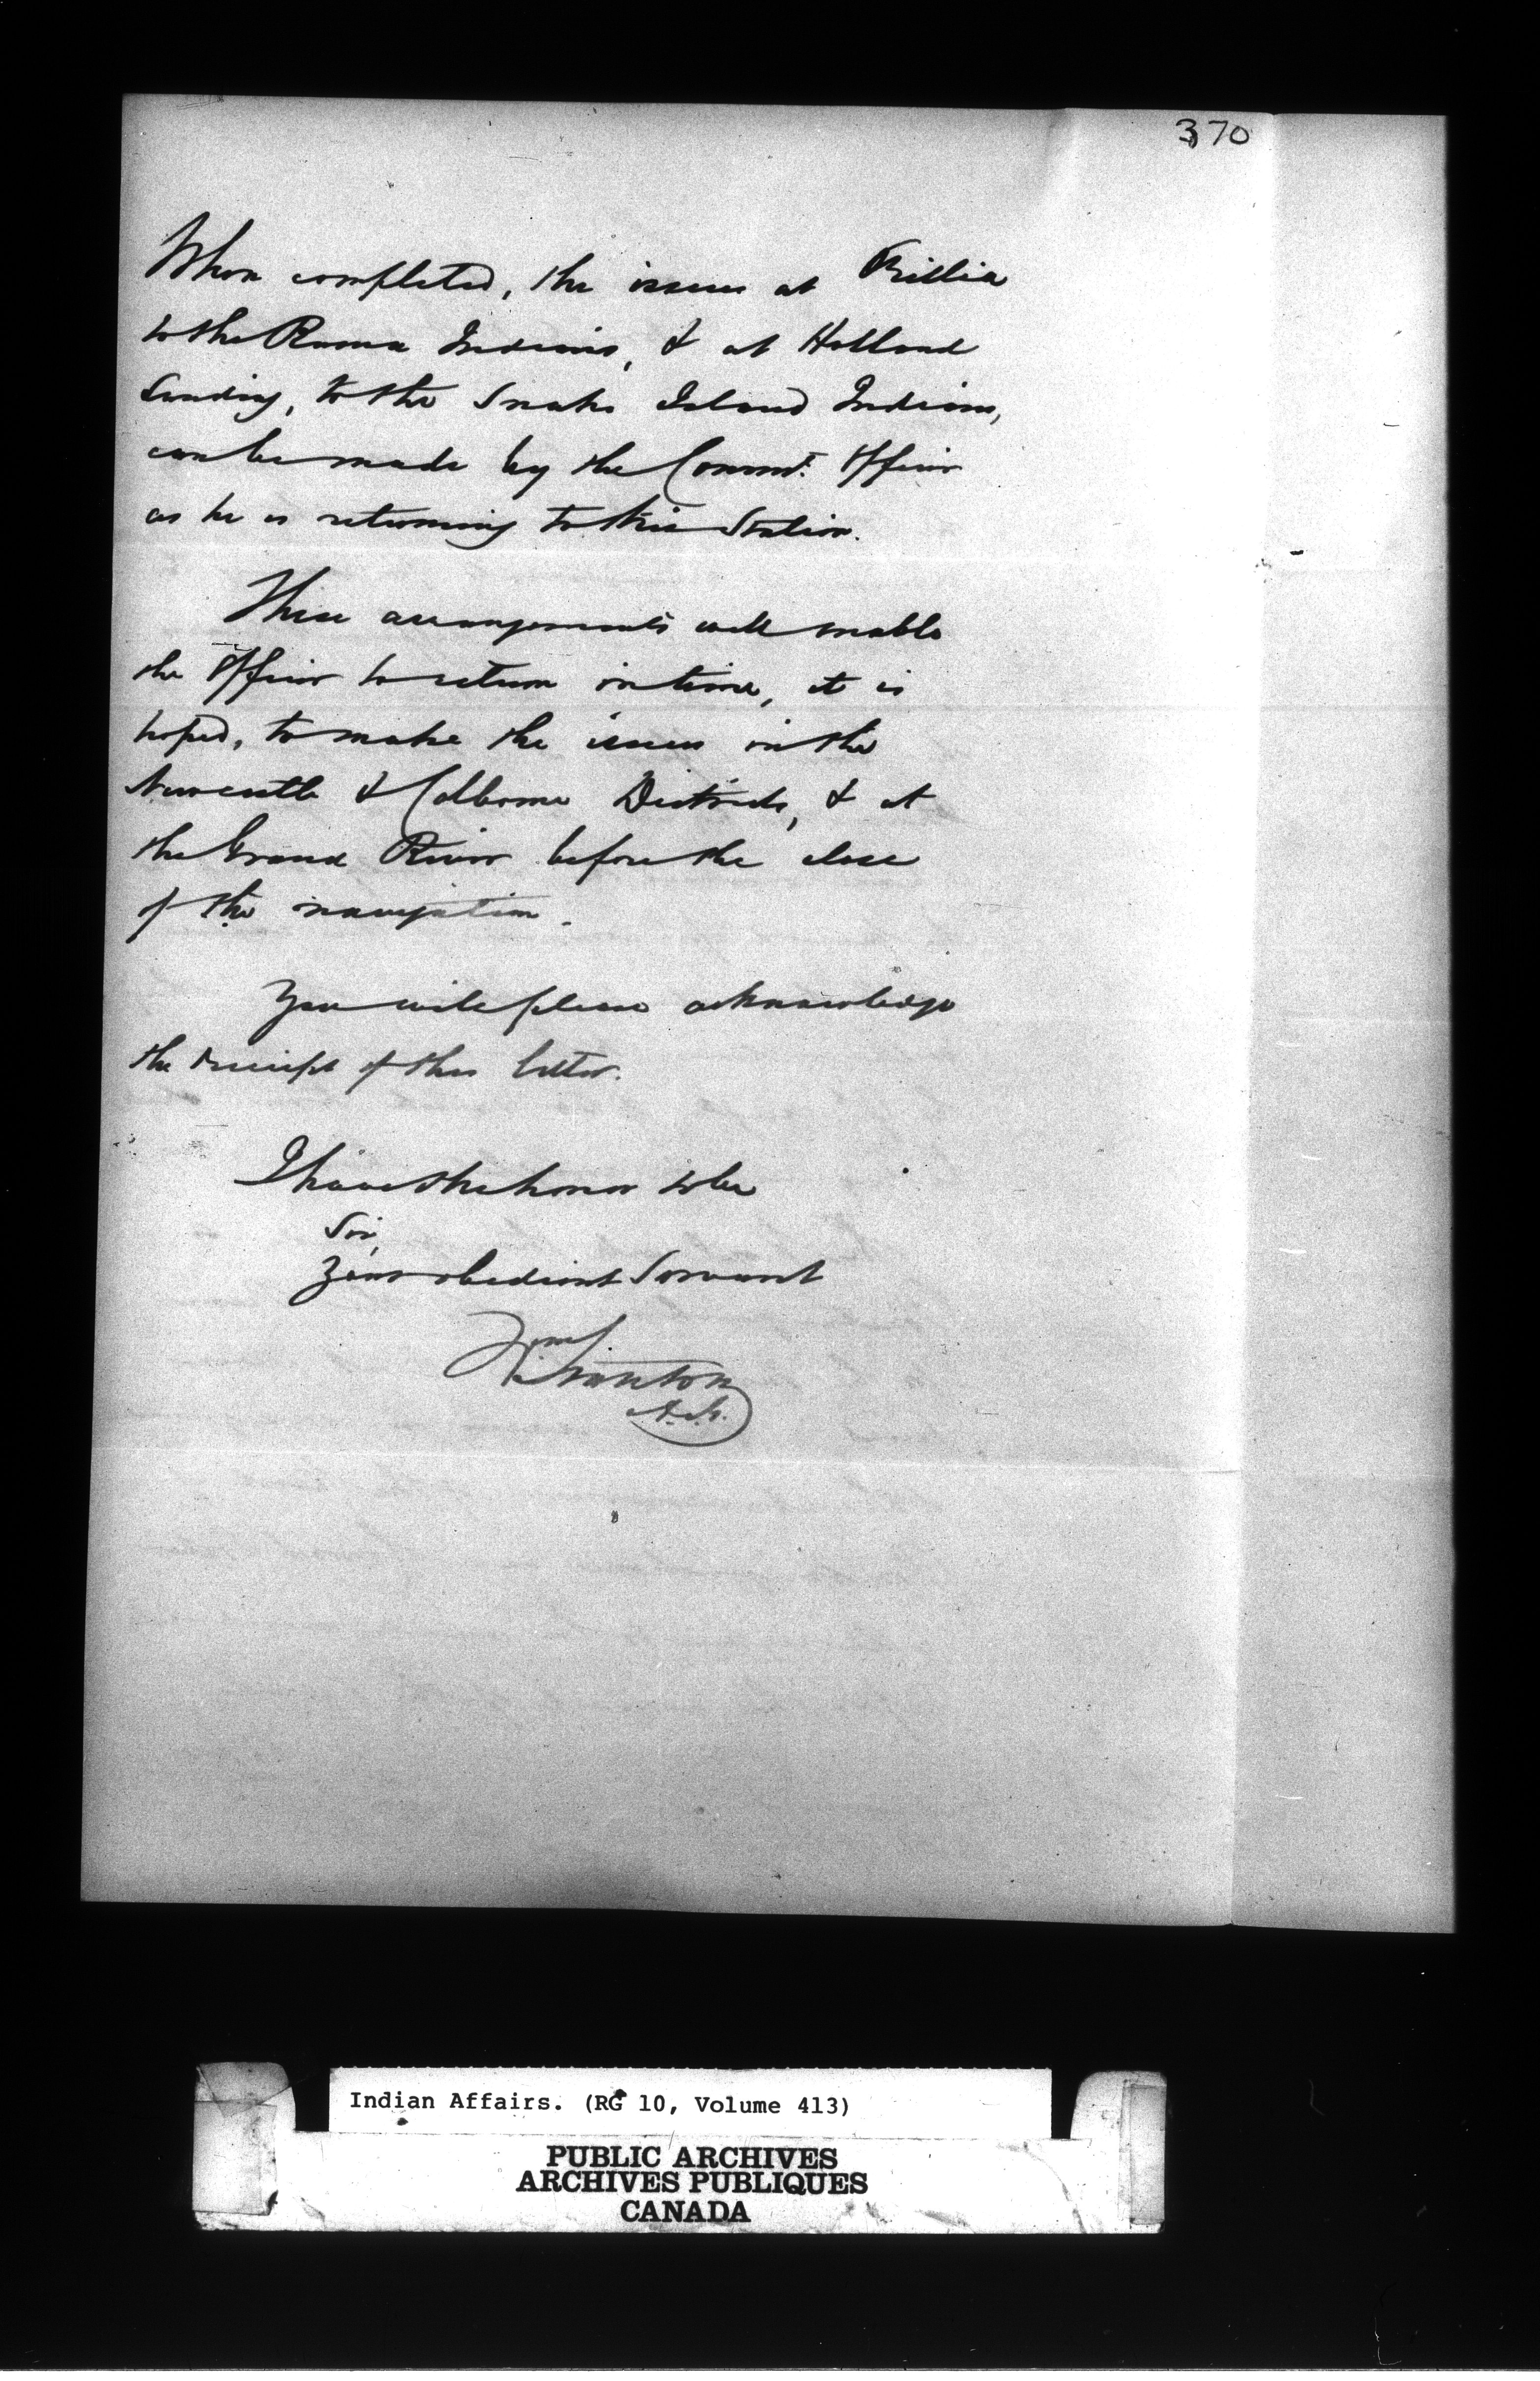 370
When completed, the issues at Orillia
to the Rama Indians, & at Holland
Landing, to the Snake Island Indians,
can be made by the Commt. Officer
as he is returning to this Station.
These arrangements will enable
the Officer to return in time, it is
hoped, to make the issues in the
Newcastle & Colborne Districts, & at
the Grand River before the close
of the navigation.
You will please acknowledge
the receipt of this letter.
I have the honor to be
Sir,
Your obedient Servant
Wm Stanton
Indian Affairs. (RG 10, Volume 413)
PUBLIC ARCHIVES
ARCHIVES PUBLIQUES
CANADA